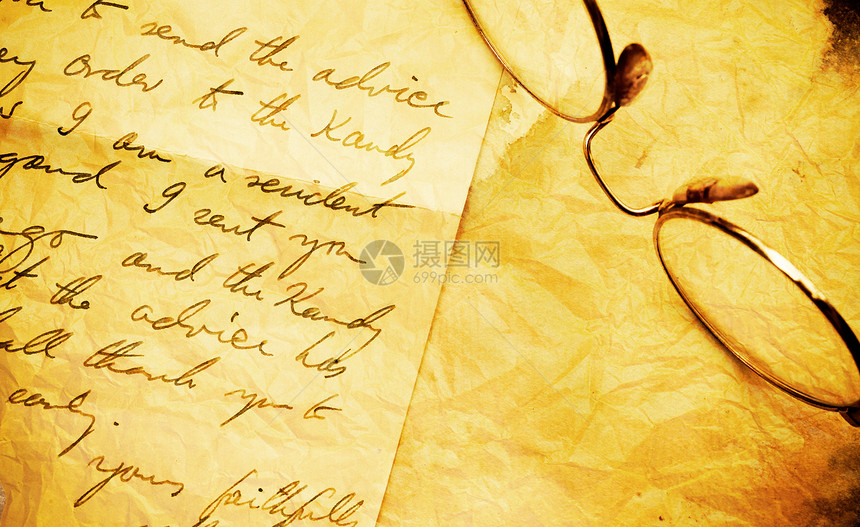 to send the advice
order to the Kandy
I am a resident
I sent you
ago and the Kandy
the advice has
all thank you to
early.
yours faithfully
摄图网
699pic.com